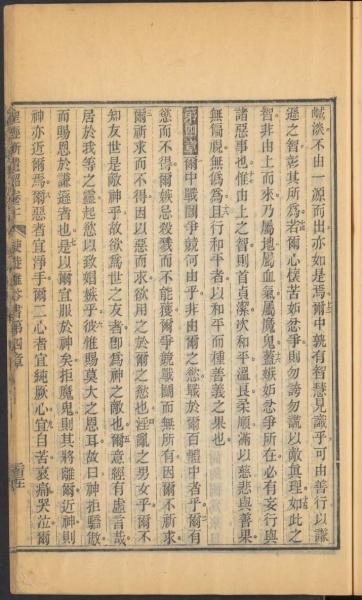 鹹淡不由一源而出亦如是焉爾中孰有智慧見識乎可由善行以謙
遜之智彰其所為若爾心懷苦妬忿爭則勿誇勿謊以敵真理如此之
智非由上而來乃屬地屬血氣屬魔鬼蓋嫉妬忿爭所在必有妄行與
諸惡事也惟由上之智則首貞潔次和平溫良柔順滿以慈悲與善果
無偏視無偽為且行和平者以和平而種善義之果也
第四章爾中戰鬬爭競何由乎非由爾之慾戰於爾百體中者乎爾有
慾而不得爾嫉忌殺戮而不能獲爾爭競戰鬬而無所有因爾不祈求
爾祈求而不得因以惡而求欲用之於爾之慾也淫亂之男女乎爾不
知友世是敵神乎故欲為世之友者即為神之敵也爾意經有虛言哉
居於我等之靈起慾以致媢嫉乎彼惟賜莫大之恩耳故曰神拒驕傲
而賜恩於謙遜者也是以爾宜服於神矣拒魔鬼則其將離爾近神則
神亦近爾焉爾惡者宜淨手爾二心者宜純厥心宜自苦哀痛哭泣爾
聖經新遺詔卷十 使徒雅各書第四章